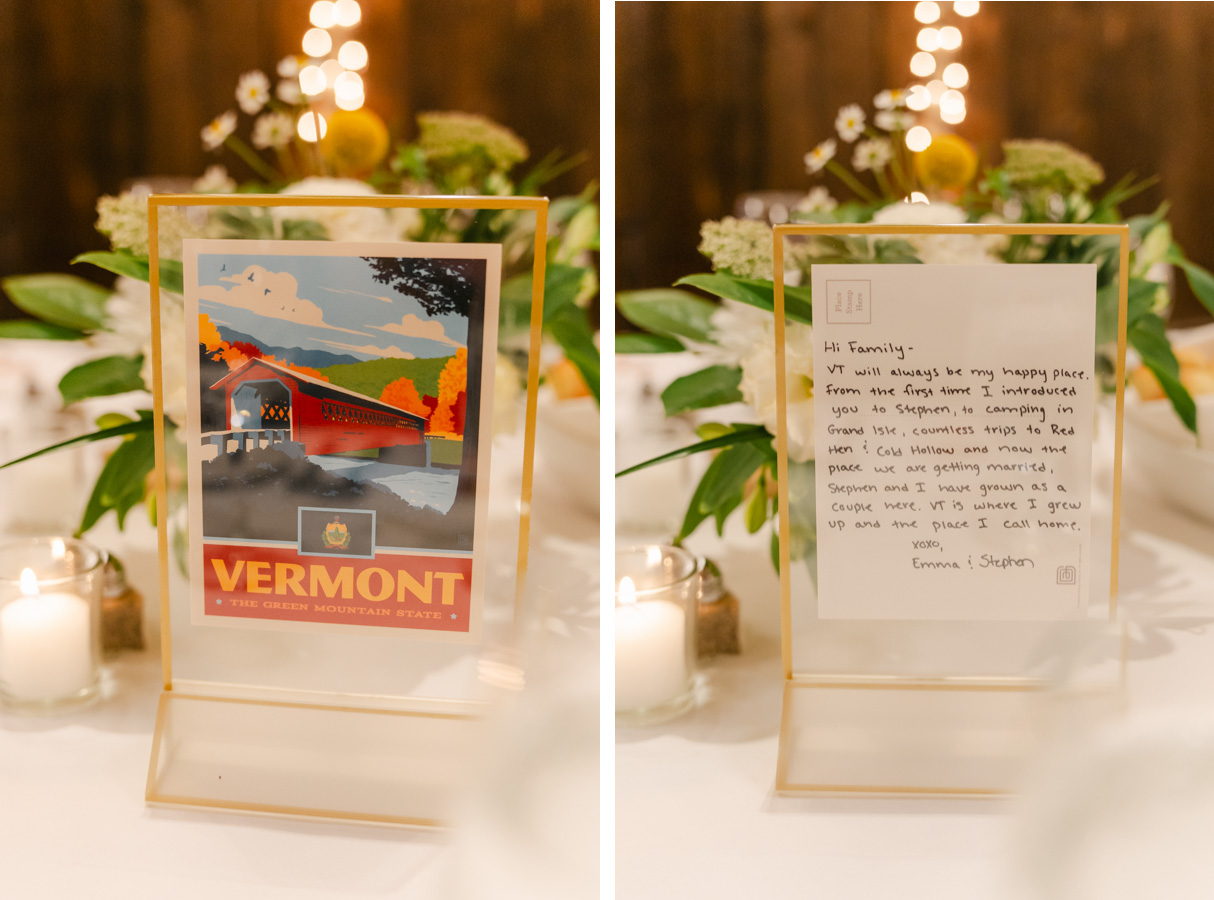 VERMONT
THE GREEN MOUNTAIN STATE
Place
Stamp
Here
Hi Family-
VT will always be my happy place.
From the first time I introduced
you to Stephen, to camping in
Grand Isle, countless trips to Red
Hen & Cold Hollow and now the
place we are getting married,
Stephen and I have grown as a
couple here. VT is where I grew
up and the place I call home.
xoxo,
Emma & Stephen